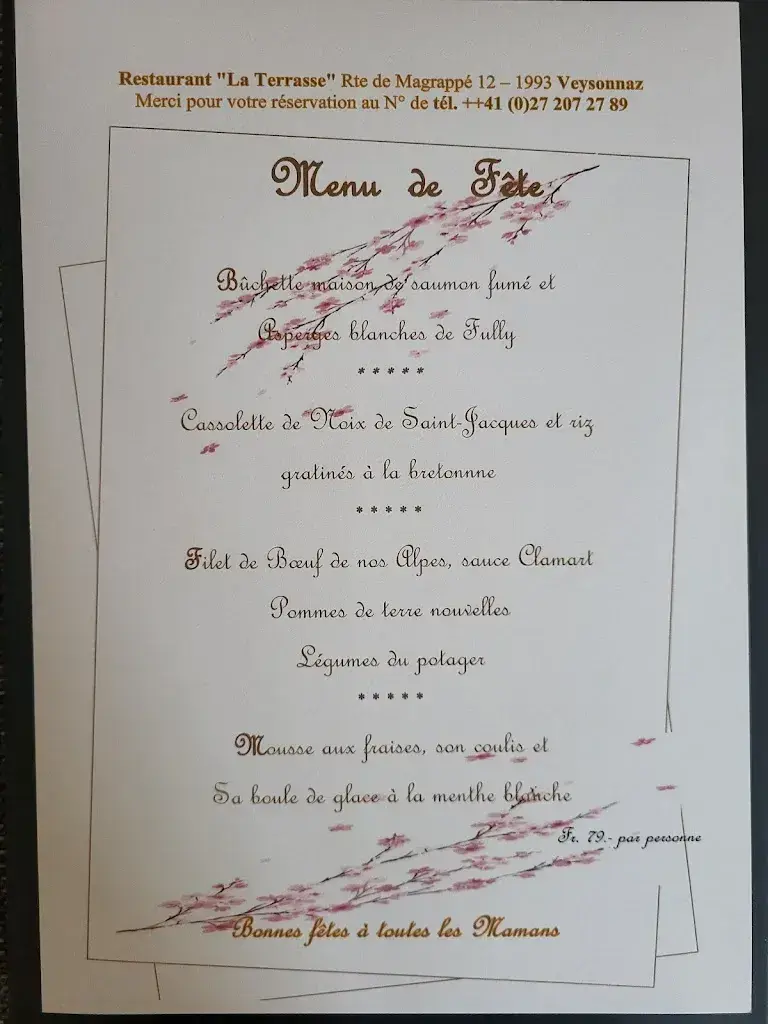 Restaurant "La Terrasse" Rte de Magrappé 12 – 1993 Veysonnaz
Merci pour votre réservation au N° de tél. ++41 (0)27 207 27 89
Menu de Fête
Bûchette maison de saumon fumé et
Asperges blanches de Fully
* * * * *
Cassolette de Noix de Saint-Jacques et riz
gratinés à la bretonnne
* * * * *
Filet de Bœuf de nos Alpes, sauce Clamart
Pommes de terre nouvelles
Légumes du potager
* * * * *
Mousse aux fraises, son coulis et
Sa boule de glace à la menthe blanche
Fr. 79.- par personne
Bonnes fêtes à toutes les Mamans